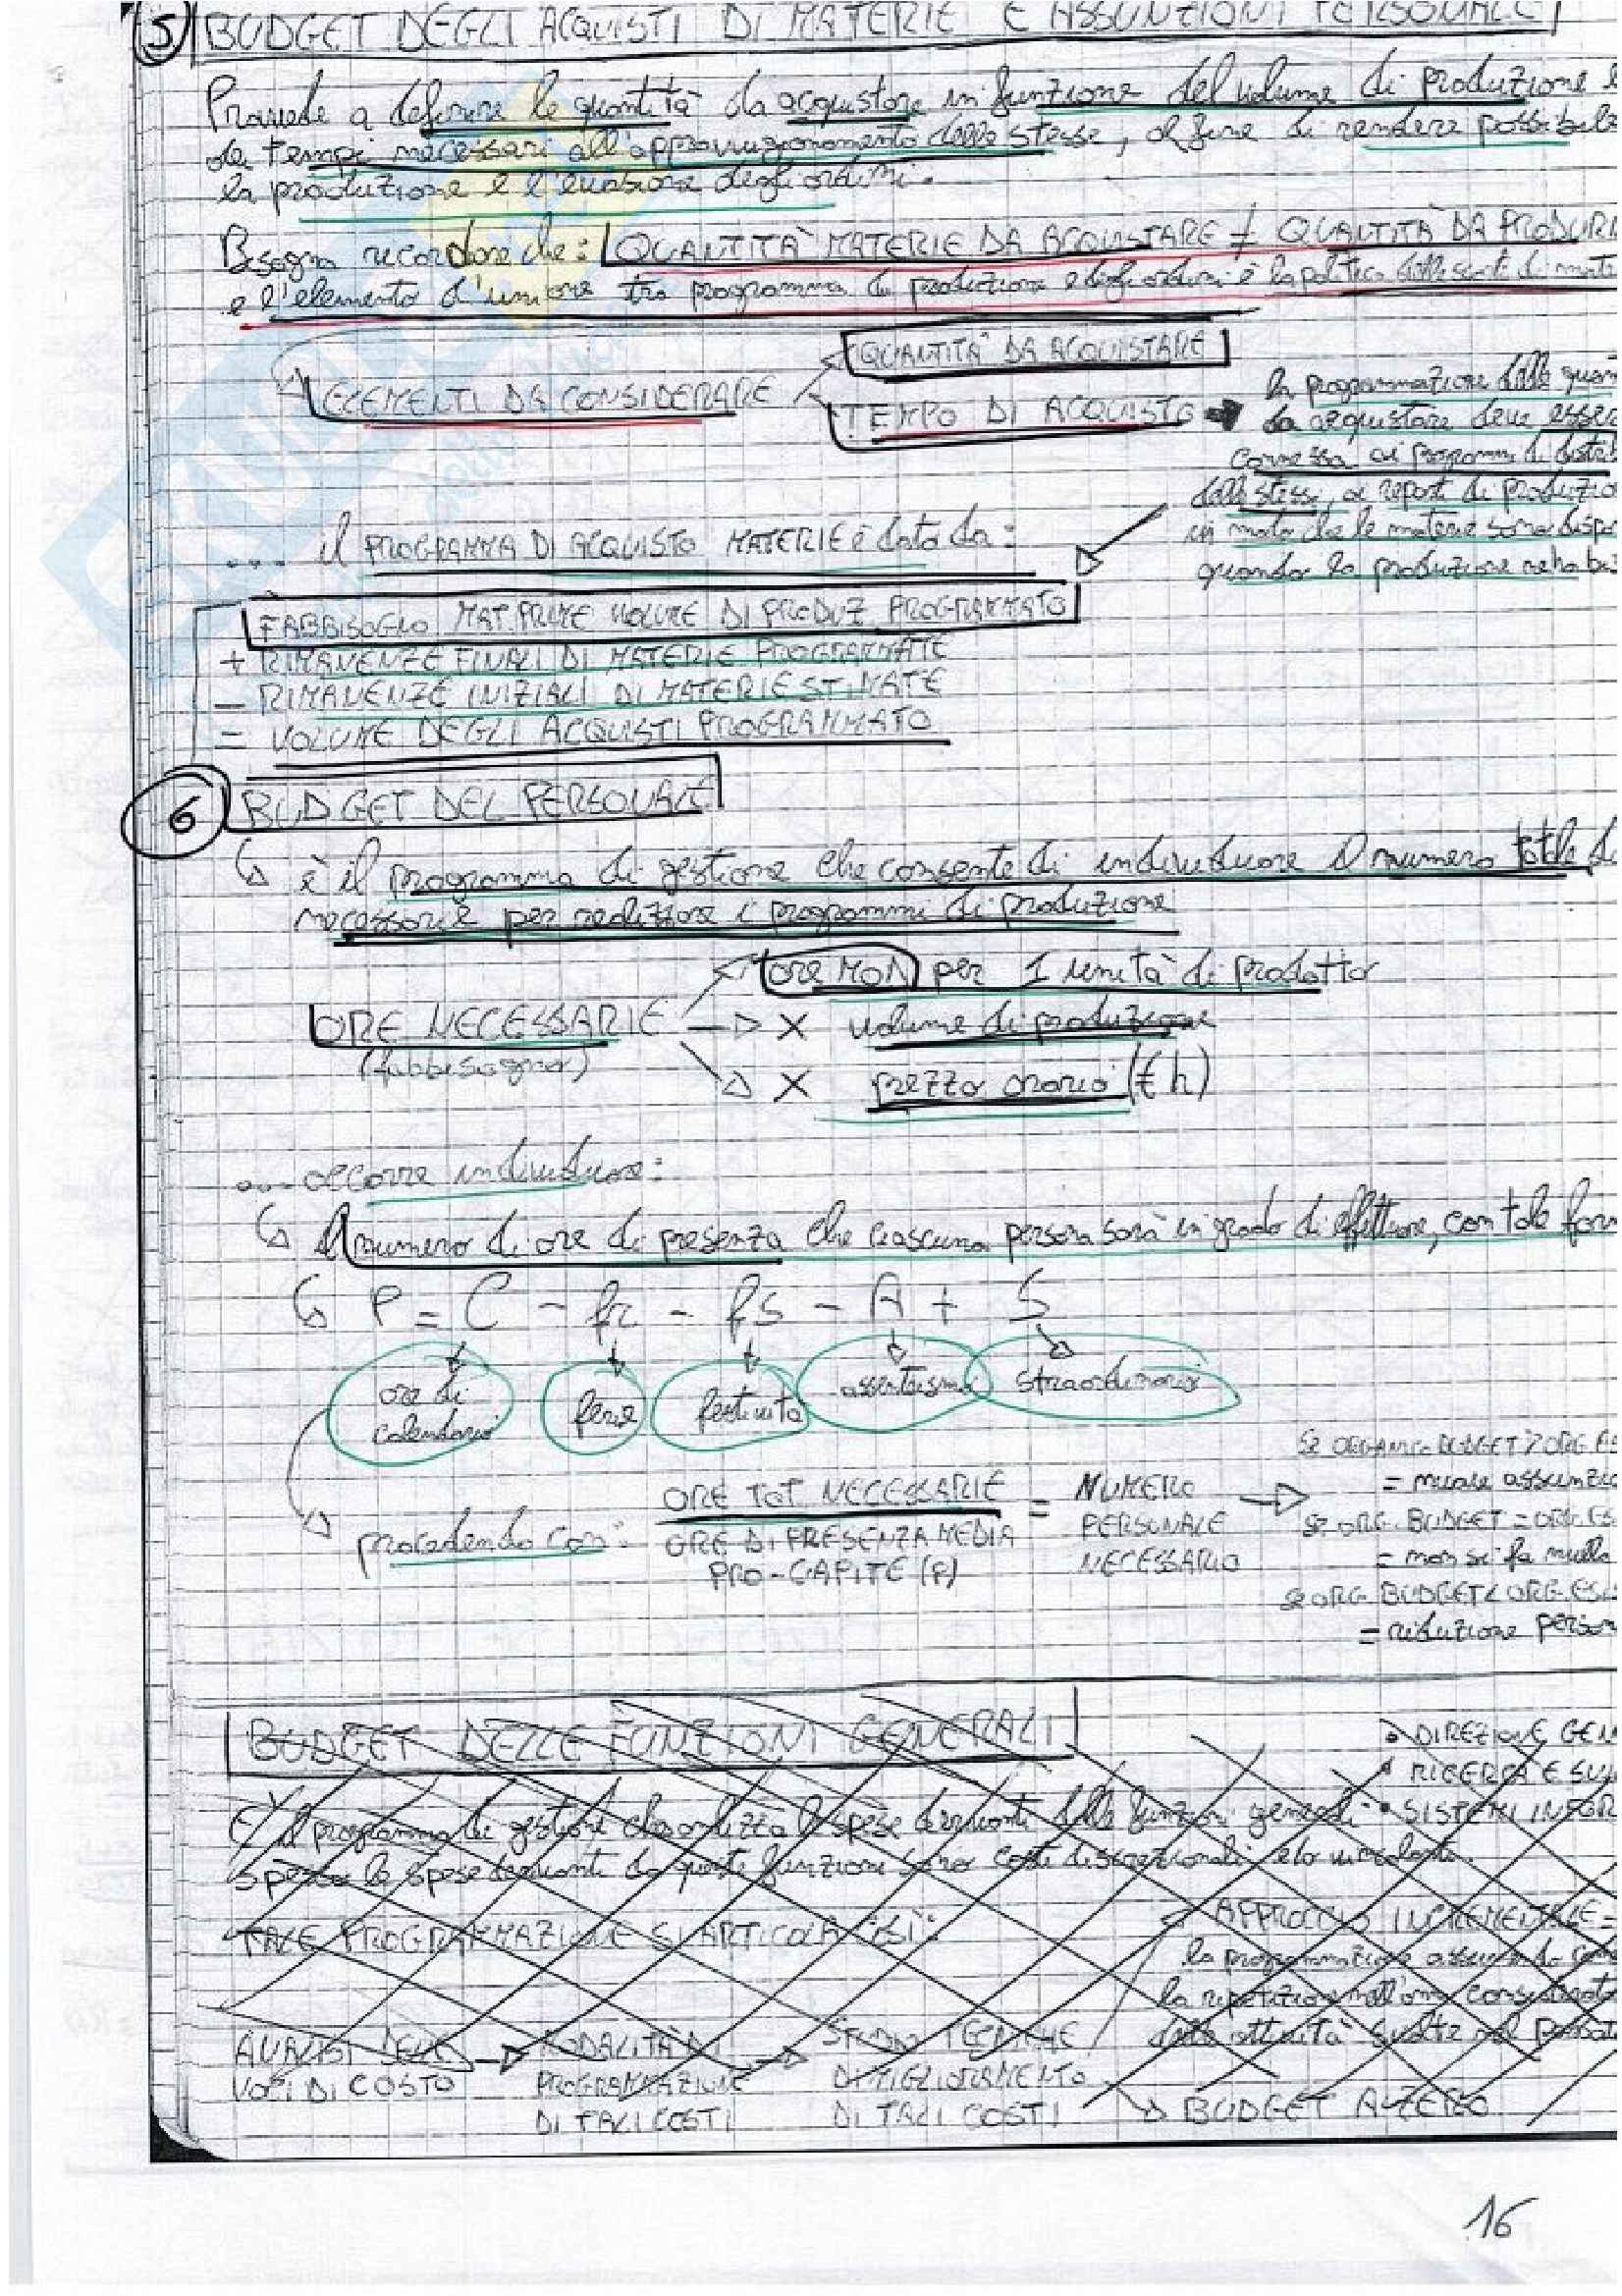 5 BUDGET DEGLI ACQUISTI DI MATERIE E ASSUNZIONI PERSONALE
Provvede a definire le quantità da acquistare in funzione del volume di produzione e
dei tempi necessari all'approvvigionamento delle stesse, al fine di rendere possibile
la produzione e l'evasione degli ordini.
Bisogna ricordare che: QUANTITÀ MATERIE DA ACQUISTARE ≠ QUANTITÀ DA PRODUR
e l'elemento d'unione tra programma di produzione e degli ordini è la politica delle scorte di mat
ELEMENTI DA CONSIDERARE
QUANTITÀ DA ACQUISTARE
TEMPO DI ACQUISTO →
la programmazione delle quan
da acquistare deve esser
connessa ai programmi di distrib
delle stesse, ai report di produzio
in modo che le materie sono dispo
quando la produzione ne ha bi
... il PROGRAMMA DI ACQUISTO MATERIE è dato da:
FABBISOGNO MAT. PRIME VOLUME DI PRODUZ. PROGRAMMATO
+ RIMANENZE FINALI DI MATERIE PROGRAMMATE
- RIMANENZE INIZIALI DI MATERIE STIMATE
= VOLUME DEGLI ACQUISTI PROGRAMMATO
6 BUDGET DEL PERSONALE
è il programma di gestione che consente di individuare il numero totale di
necessarie per realizzare i programmi di produzione
ore MOD per 1 unità di prodotto
ORE NECESSARIE → × volume di produzione
(fabbisogno)
× prezzo orario (€ h)
... occorre individuare:
il numero di ore di presenza che ciascuna persona sarà in grado di effettuare, con tale for
P = C - fr - fs - A + S
ore di calendario
ferie
festività
assenteismo
straordinario
procedendo con:
ORE TOT NECESSARIE
ORE DI PRESENZA MEDIA
PRO-CAPITE (P)
= NUMERO
PERSONALE
NECESSARIO
SE ORGANIC. BUDGET > ORG. ES
= nuove assunzio
SE ORG. BUDGET = ORG. ES.
= non si fa nulla
SE ORG. BUDGET < ORG. ES.
= riduzione person
BUDGET DELLE FUNZIONI GENERALI
• DIREZIONE GEN
• RICERCA E SVI
• SISTEMI INFOR
È il programma di gestione che analizza le spese derivanti dalle funzioni generali
spesso le spese derivanti da queste funzioni sono costi discrezionali e/o vincolanti.
TALE PROGRAMMAZIONE SI ARTICOLA COSÌ:
APPROCCIO INCREMENTALE =
la programmazione assumendo come
la ripetizione nell'anno considerato
delle attività svolte nel passat
ANALISI DELLE
VOCI DI COSTO
→ MODALITÀ DI
PROGRAMMAZIONE
DI TALI COSTI
→ STUDIO TECNICHE
DI MIGLIORAMENTO
DI TALI COSTI
BUDGET A ZERO
16